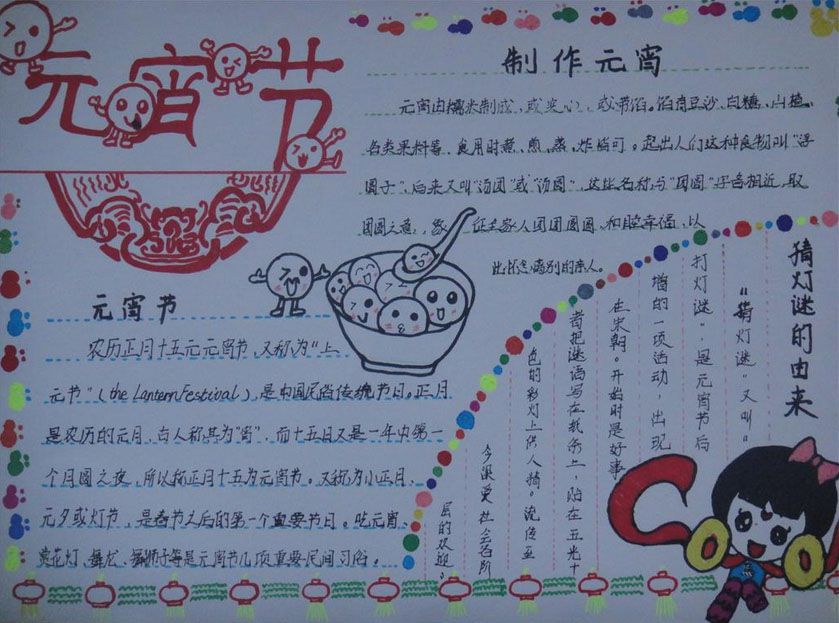 元宵节
制作元宵
元宵由糯米制成，或实心，或带馅。馅有豆沙、白糖、山楂、
各类果料等，食用时煮、煎、蒸、炸皆可。起出人们这种食物叫“浮
圆子”，后来又叫“汤团”或“汤圆”，这些名称与“团圆”字音相近，取
团圆之意，象 征全家人团团圆圆，和睦幸福，以
此怀念离别的亲人。
元宵节
农历正月十五元元宵节，又称为“上
元节”（the LanternFestival），是中国民俗传统节日。正月
是农历的元月，古人称其为“宵”，而十五日又是一年中第一
个月圆之夜，所以称正月十五为元宵节。又称为小正月、
元夕或灯节，是春节之后的第一个重要节日。吃元宵、
赏花灯、舞龙、舞狮子等是元宵节几项重要民间习俗。
猜灯谜的由来
“猜灯谜”又叫“
打灯谜”，是元宵节后
增的一项活动，出现
在宋朝。开始时是好事
者把谜语写在纸条上，贴在五光十
色的彩灯上供人猜。流传至
今深受社会各阶
层的欢迎。